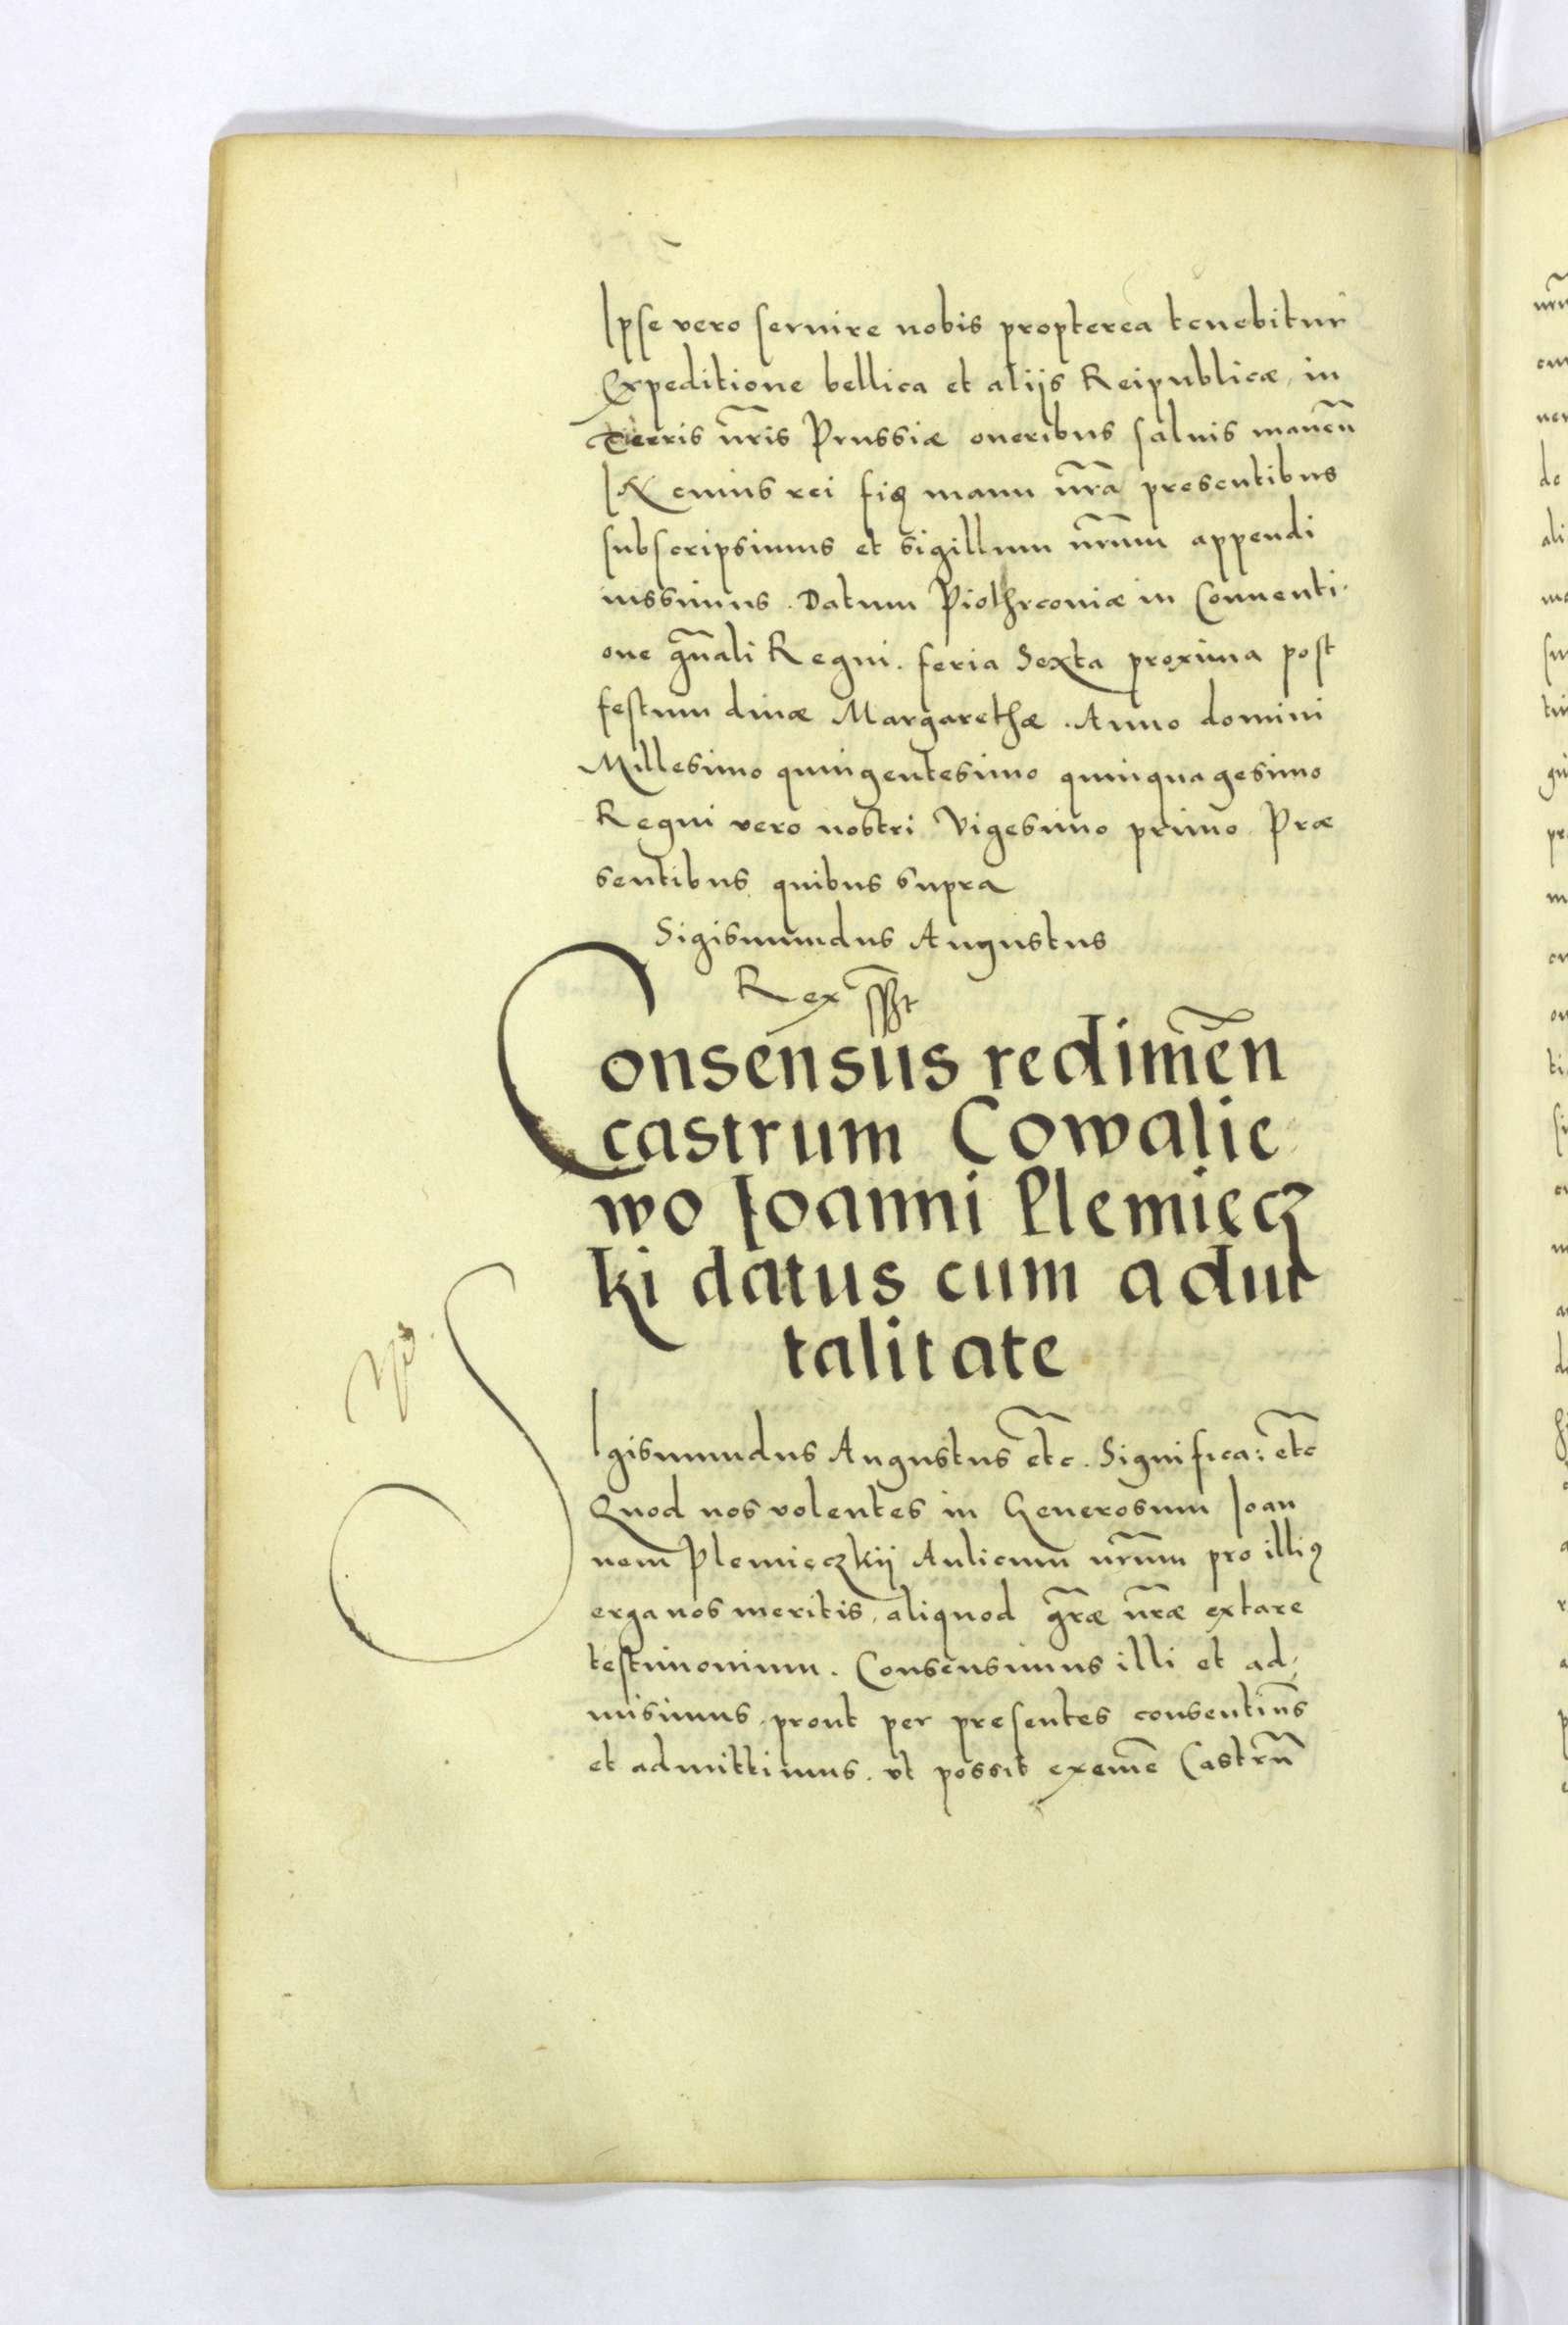 Ipse vero seruire nobis propterea tenebitur
Expeditione bellica et alijs Reipublicæ, in
Terris nr̄is Prussiæ oneribus saluis manen̄
IN cuius rei fiḍ manu nr̄a presentibus
subscripsimus et sigillum nr̄um appendi
iussimus. Datum Piothrconiæ in Conuenti-
one gn̄ali Regni. feria Sexta proxima post
festum diuæ Margarethæ. Anno domini
Millesimo quingentesimo quinquagesimo
Regni vero nostri Vigesimo primo Præ
sentibus quibus supra
Sigismundus Augustus
Rex sßt
Consensus redimen̄
castrum Cowalie
wo Ioanni Plemięcz
ki datus cum aduit
talitate
SIgismundus Augustus etc̄. Significa: etc̄
Quod nos volentes in Generosum Ioan
nem Plemięczkij Aulicum nr̄um pro illiꝰ
erga nos meritis, aliquod gr̄æ nr̄æ extare
testimonium. Consensimus illi et ad-
misimus, prout per presentes consentim̄s
et admittimus. vt possit exemē Castrū